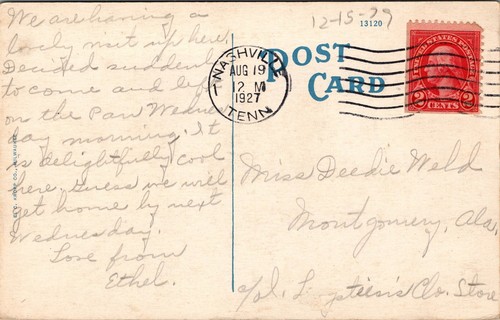 We are having a
lovely visit up here.
Decided suddenly
to come and left
on the Pan Wednes
day morning. It
is delightfully cool
here. Guess we will
get home by next
Wednesday.
Love from
Ethel.
12-15-79
13120
POST
CARD
NASHVILLE
AUG 19
12 M
1927
TENN.
UNITED STATES POSTAGE
2 CENTS 2
Miss Deedie Weld
Montgomery, Ala.
c/o L. Clo. Store